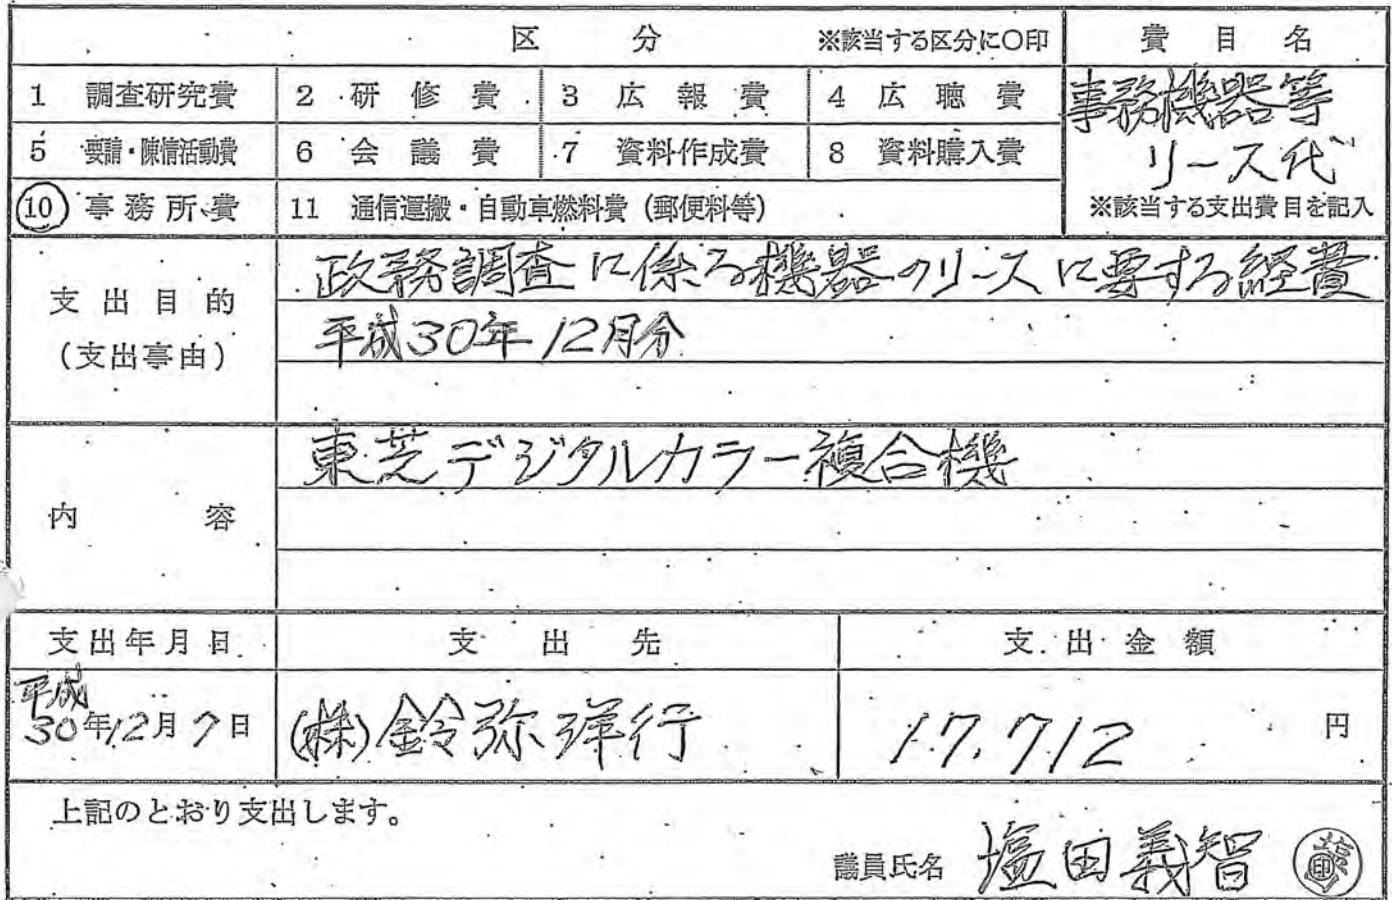 区分 ※該当する区分に○印 費目名
1 調査研究費 2 研修費 3 広報費 4 広聴費 事務機器等
5 要請・陳情活動費 6 会議費 7 資料作成費 8 資料購入費 リース代
10 事務所費 11 通信運搬・自動車燃料費（郵便料等） ※該当する支出費目を記入
支出目的
（支出事由）
政務調査に係る機器のリースに要する経費
平成30年12月分
内容
東芝デジタルカラー複合機
支出年月日 支出先 支出金額
平成
30年12月7日 (株)鈴弥洋行 17,712 円
上記のとおり支出します。
議員氏名 塩田義智